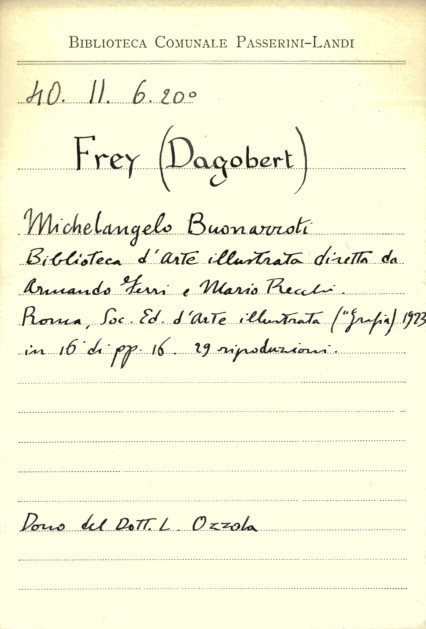 BIBLIOTECA COMUNALE PASSERINI-LANDI
40. II. 6. 20°
Frey (Dagobert)
Michelangelo Buonarroti
Biblioteca d'Arte illustrata diretta da
Armando Ferri e Mario Recchi.
Roma, Soc. Ed. d'Arte illustrata ("Grafia") 1923
in 16° di pp. 16. 29 riproduzioni.
Dono del Dott. L. Ozzola